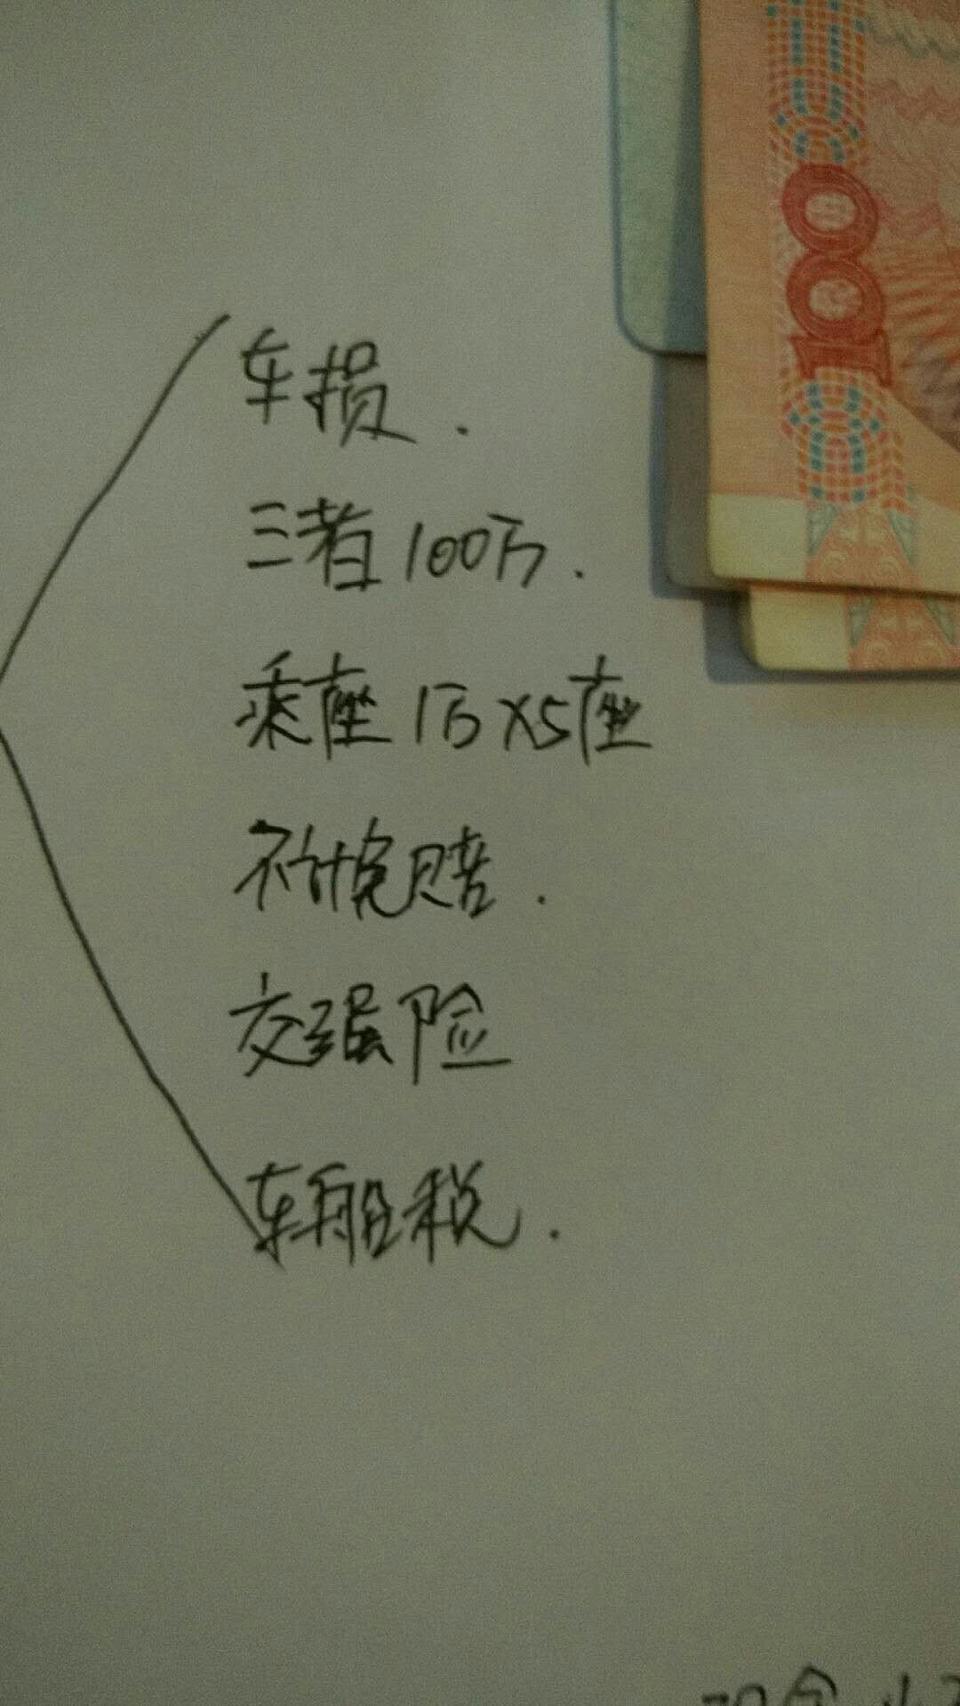 100
车损.
三者100万.
乘座1万×5座
不计免赔.
交强险
车船税.